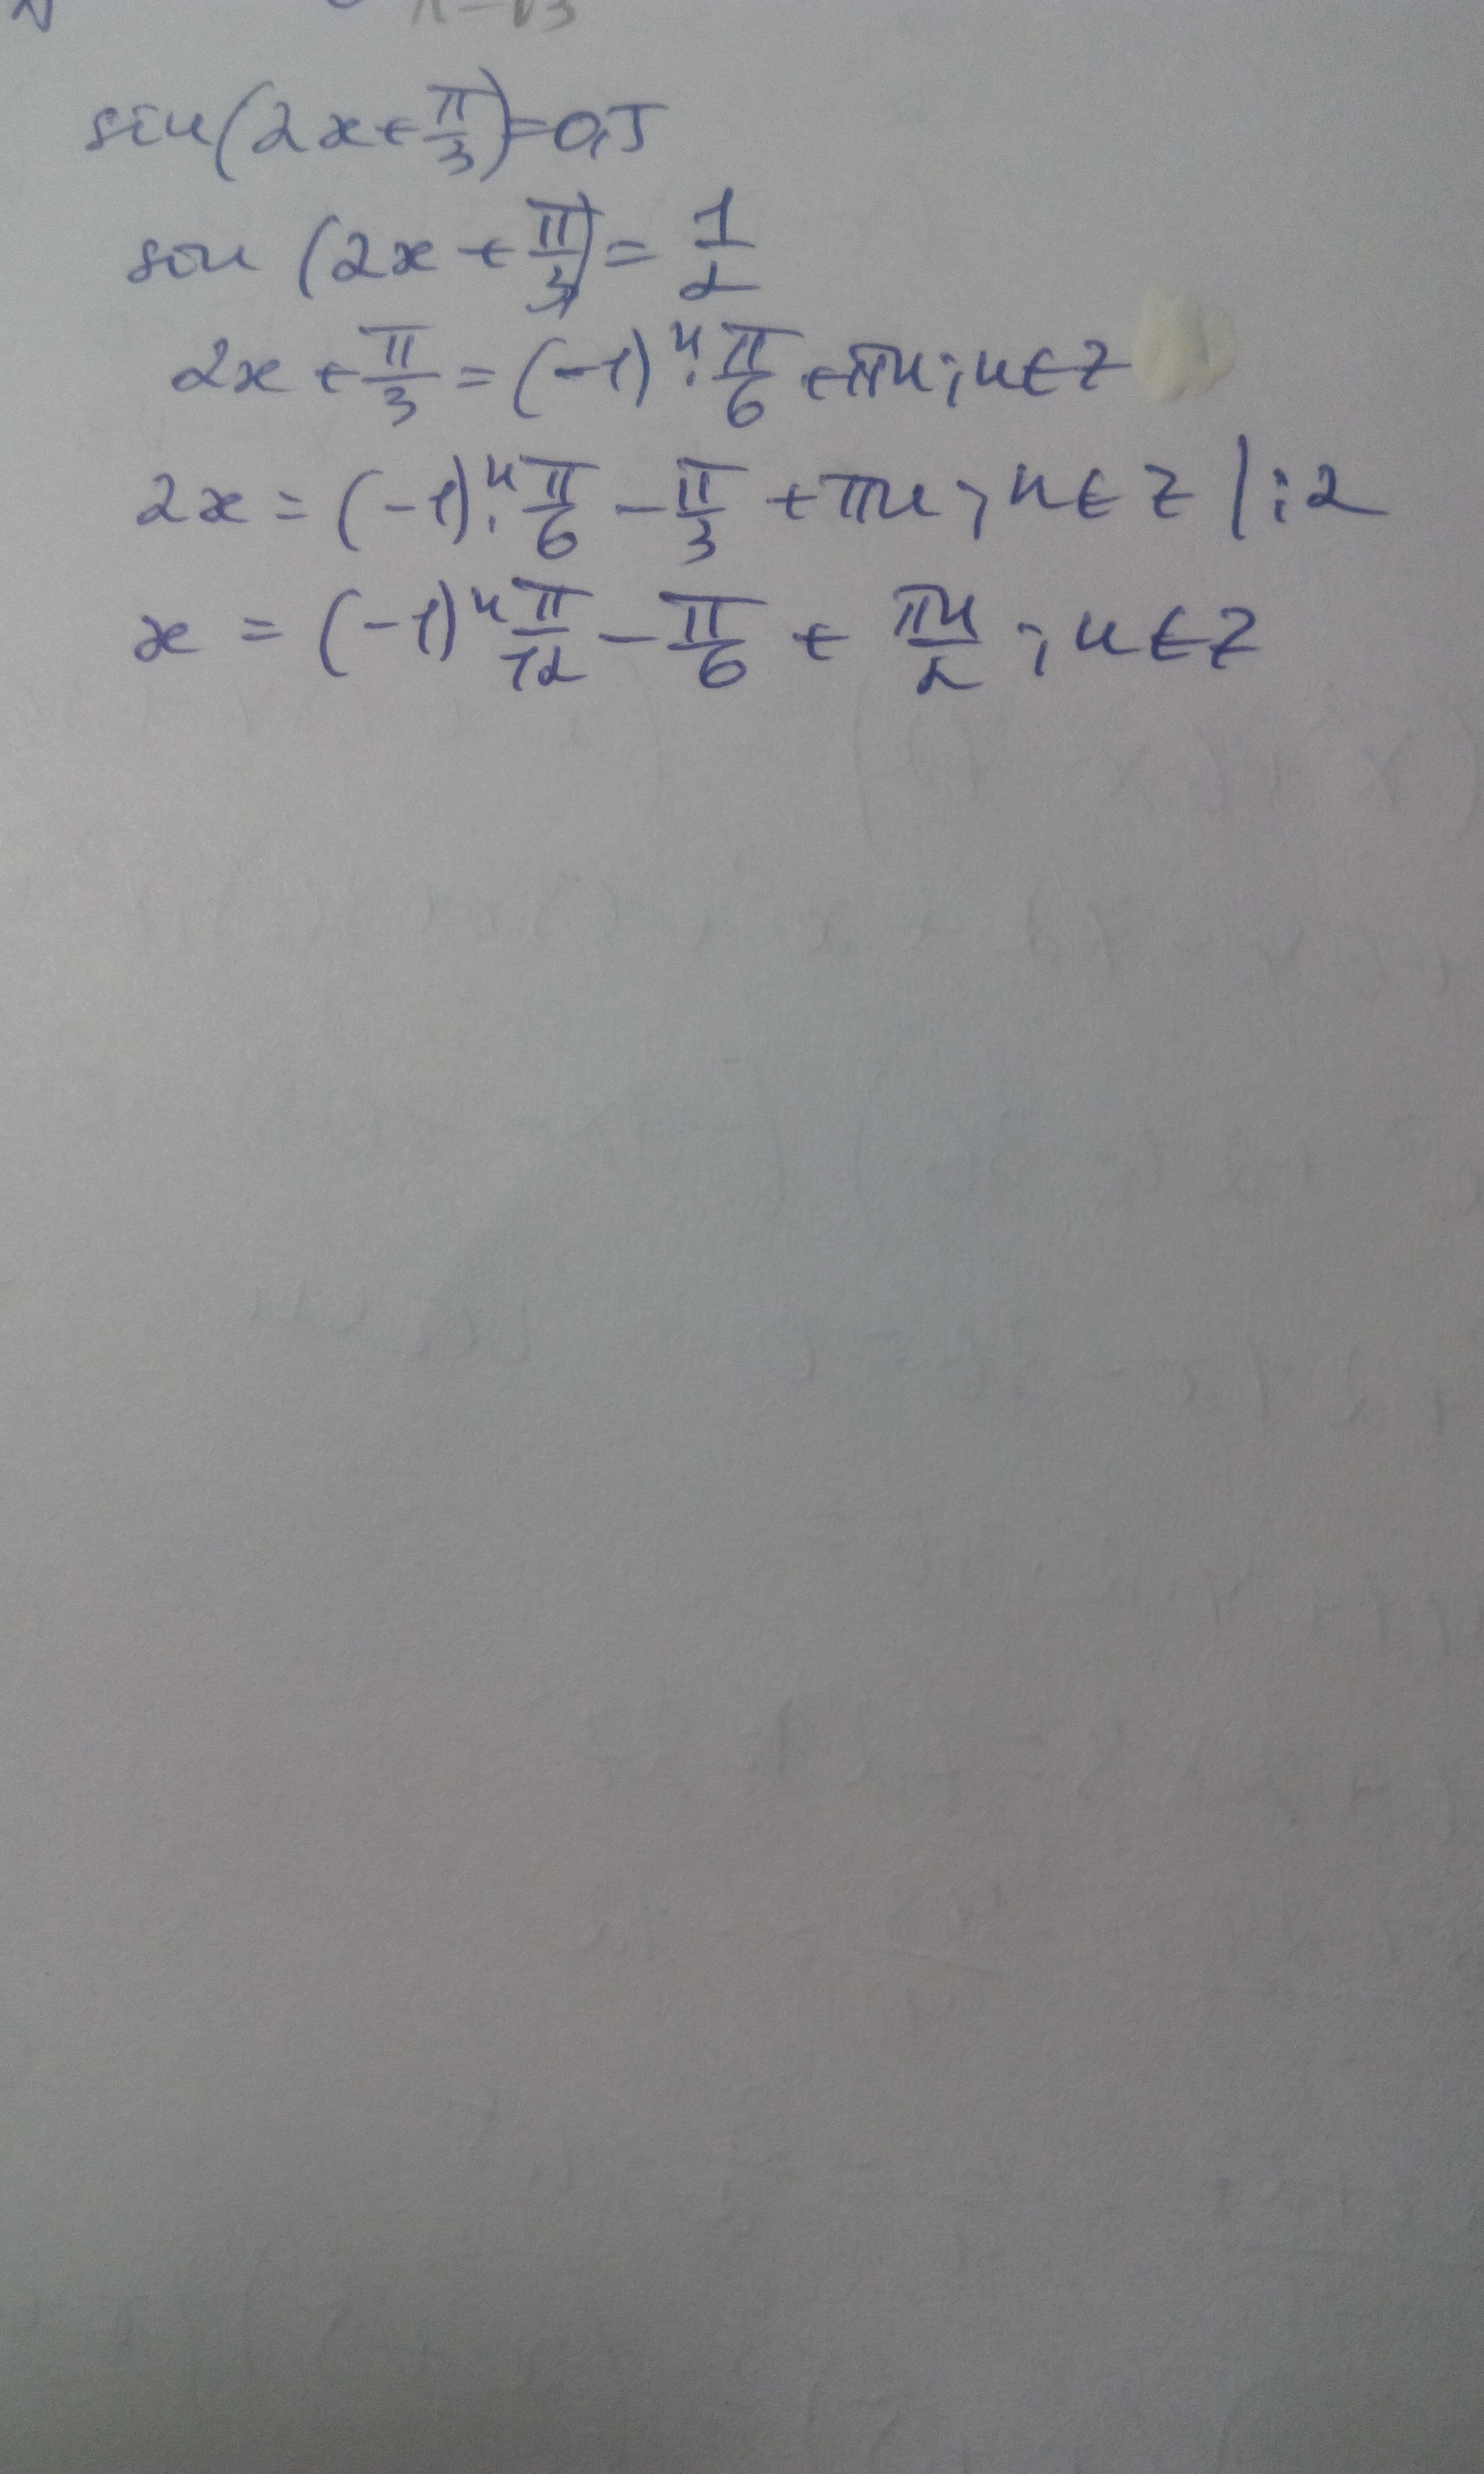 π-√3
sin(2x+π/3)=0,5
sin (2x+π/3)=1/2
2x+π/3=(-1)ⁿ·π/6+πn; n∈Z
2x=(-1)ⁿ·π/6-π/3+πn; n∈Z |:2
x=(-1)ⁿπ/12-π/6+πn/2; n∈Z